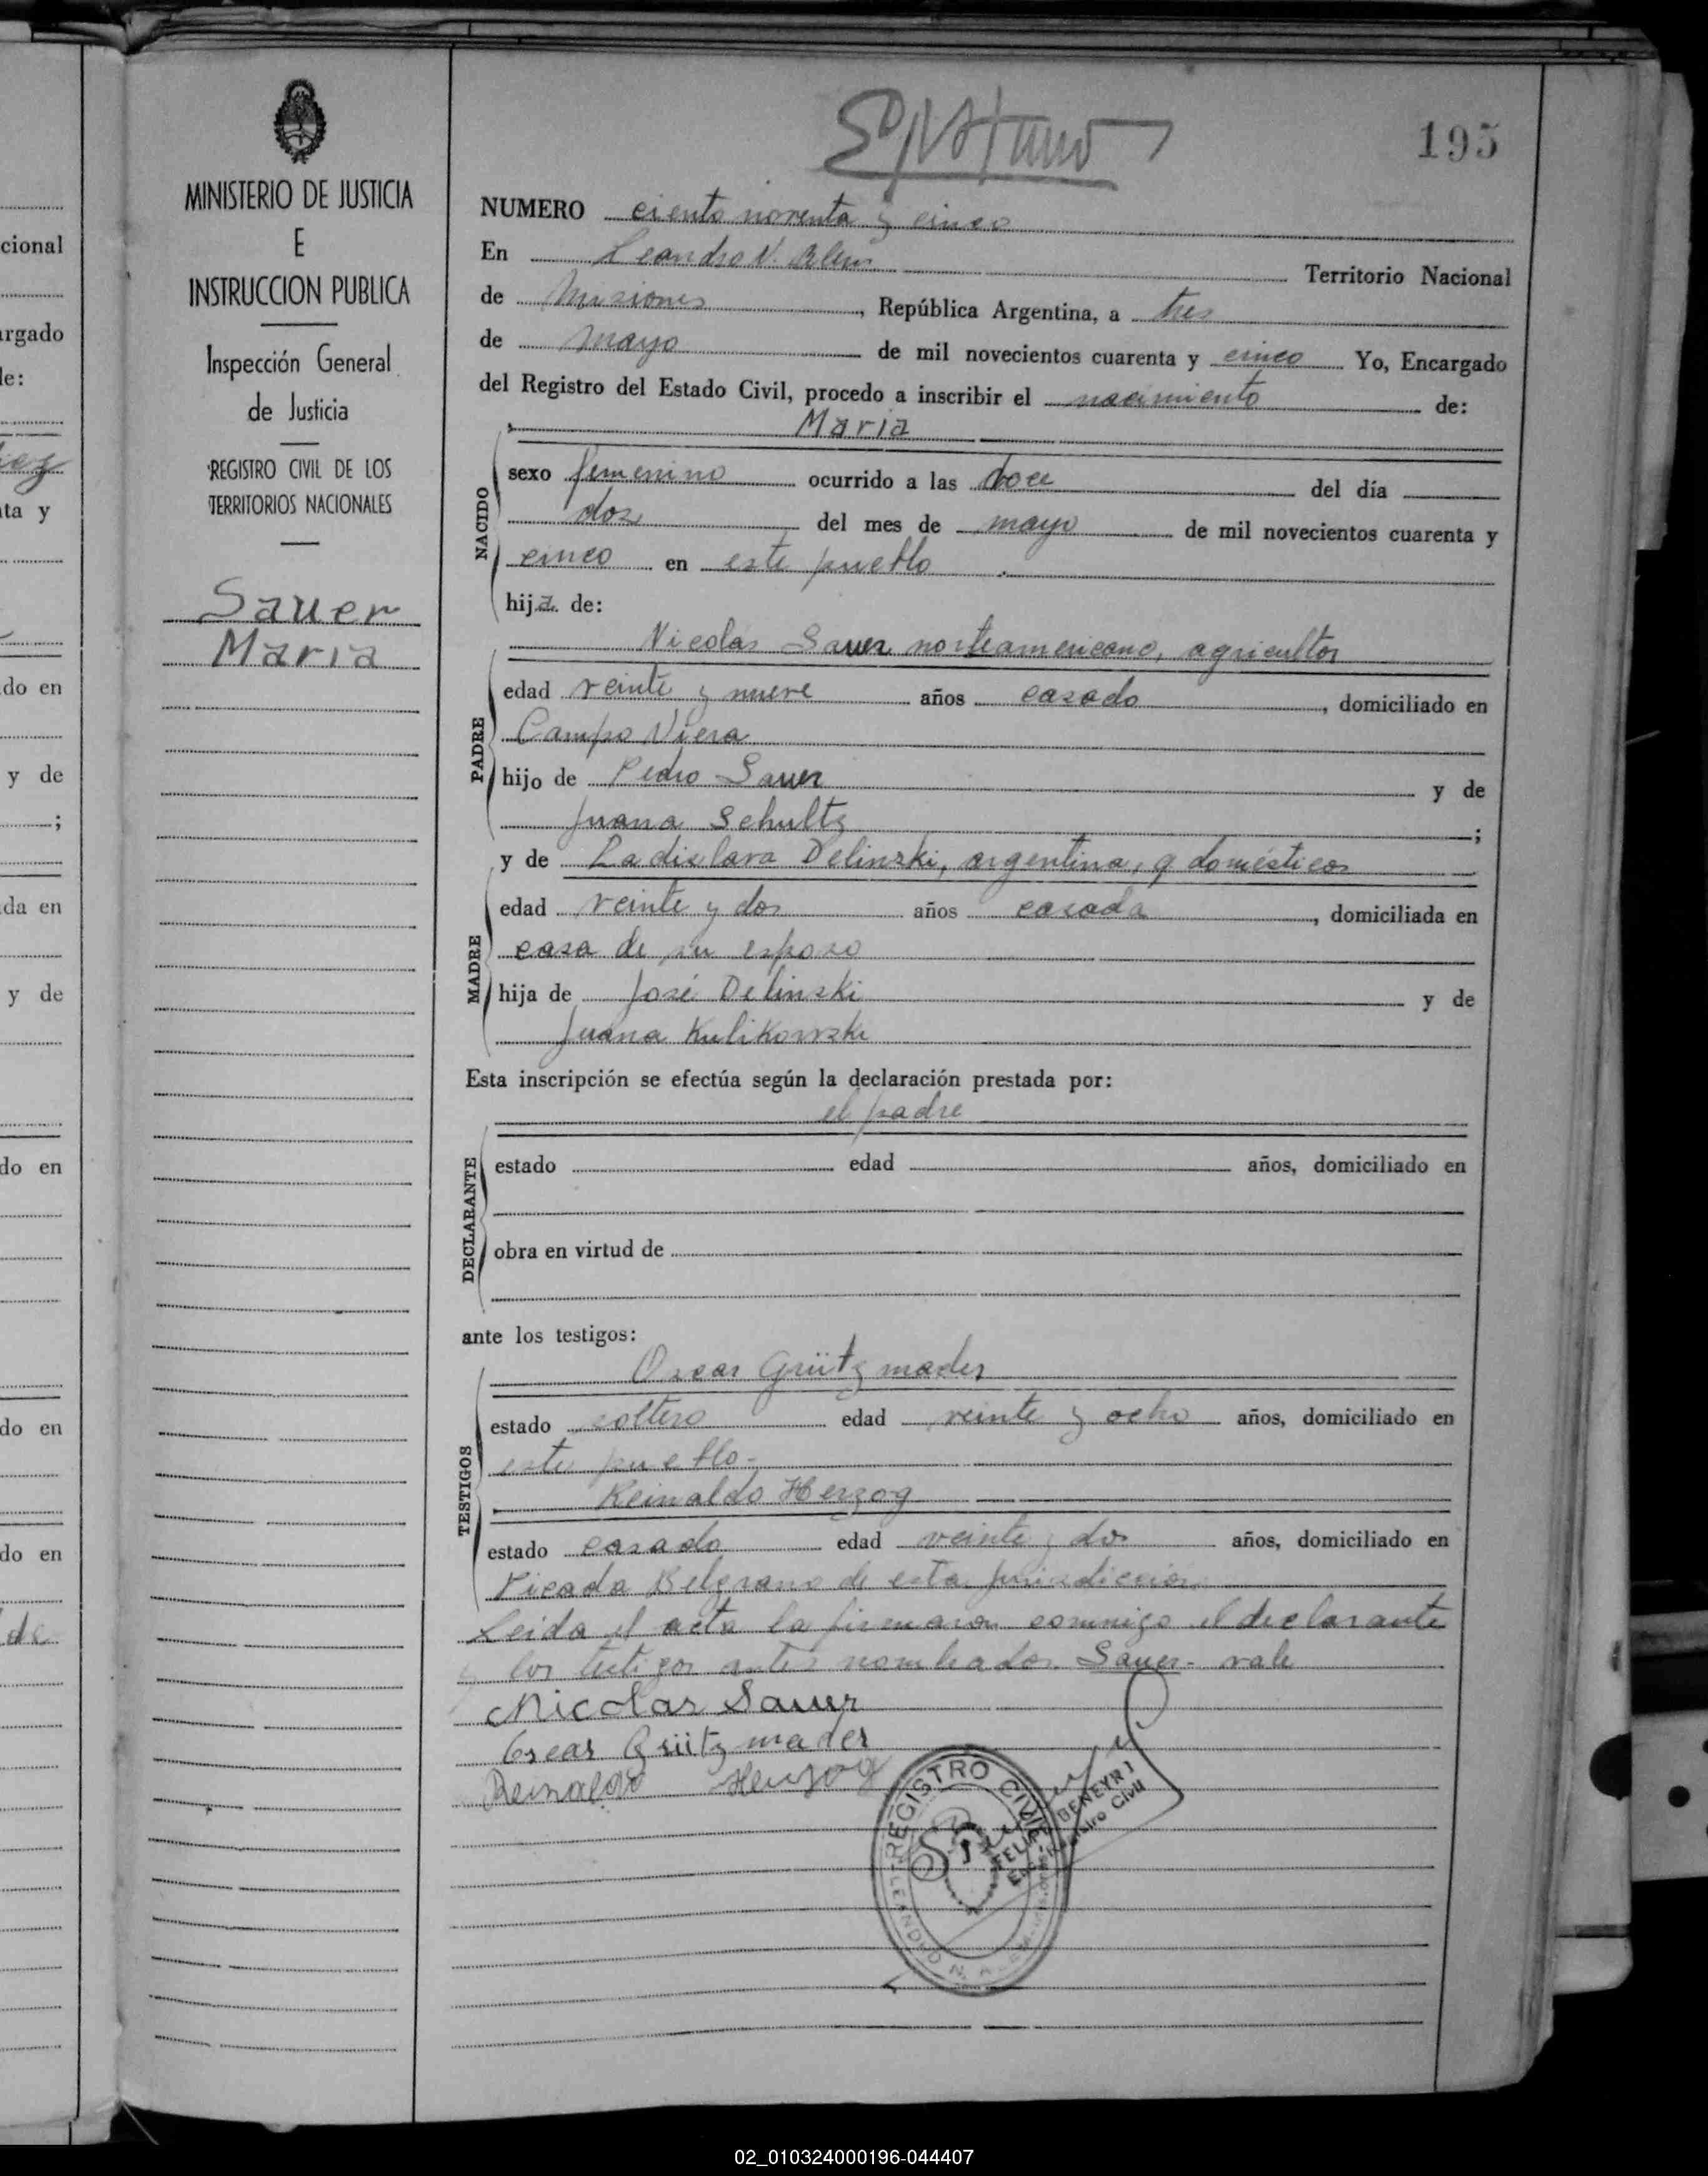 195
NUMERO ciento noventa y cinco
En Leandro N. Alem Territorio Nacional
de Misiones, República Argentina, a tres
de mayo de mil novecientos cuarenta y cinco Yo, Encargado
del Registro del Estado Civil, procedo a inscribir el nacimiento de:
Maria
NACIDO
sexo femenino ocurrido a las doce del día
dos del mes de mayo de mil novecientos cuarenta y
cinco en este pueblo.
hija de:
PADRE
Nicolás Sauer norteamericano, agricultor
edad veinte y nueve años casado, domiciliado en
Campo Viera
hijo de Pedro Sauer y de
Juana Schultz;
MADRE
y de Ladislava Delinski, argentina, q. domésticos
edad veinte y dos años casada, domiciliada en
casa de su esposo
hija de José Delinski y de
Juana Kulikowski
Esta inscripción se efectúa según la declaración prestada por:
el padre
DECLARANTE
estado edad años, domiciliado en
obra en virtud de
ante los testigos:
TESTIGOS
Oscar Grützmader
estado soltero edad veinte y ocho años, domiciliado en
este pueblo-
Reinaldo Herzog
estado casado edad veinte y dos años, domiciliado en
Picada Belgrano de esta jurisdiccion
Leida el acta la firmaron conmigo el declarante
y los testigos antes nombrados. Sauer- vale
Nicolas Sauer
Oscar Grützmader
Reinaldo Herzog
REGISTRO CIVIL
LEANDRO N. ALEM
FELIPE BENEYRI
Enc. Registro Civil
MINISTERIO DE JUSTICIA
E
INSTRUCCION PUBLICA
Inspección General
de Justicia
REGISTRO CIVIL DE LOS
TERRITORIOS NACIONALES
Sauer
Maria
cional
argado
le:
ta y
do en
y de
;
da en
y de
do en
do en
do en
de
02_010324000196-044407